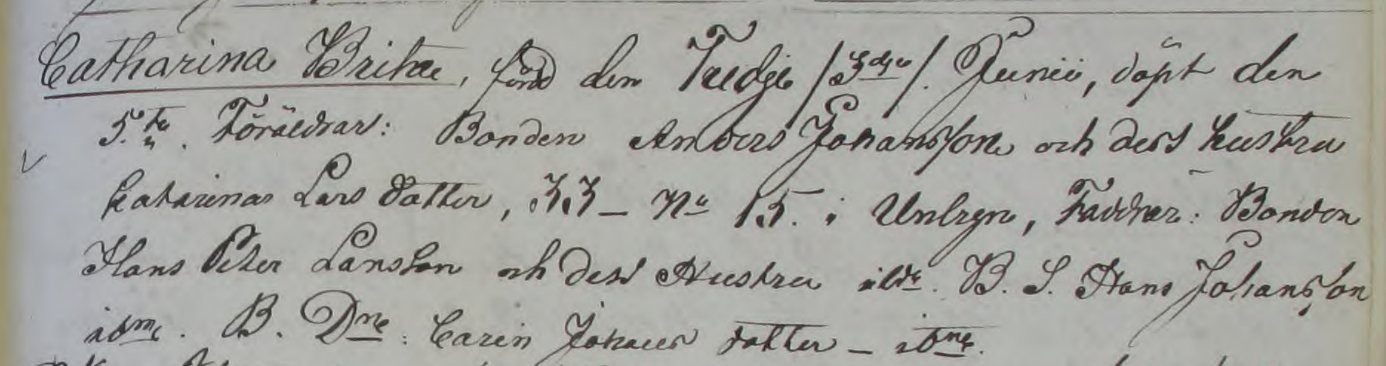 Catharina Brita, född den Tredje /3dje/. Junii, döpt den
5.te. Föräldrar: Bonden Anders Johansson och dess hustru
Katarina Lars dotter, 33 – No 15. i, Faddrar: Bonden
Hans Peter Larsson och dess Hustru ibdm. B. S. Hans Johansson
ibdm. B. Dne. Carin Johans dotter – ibdm.